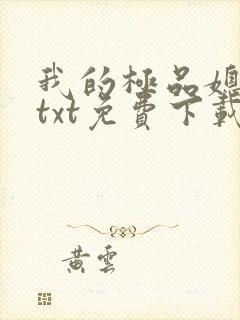 我的極品
txt免費下載
黃雲